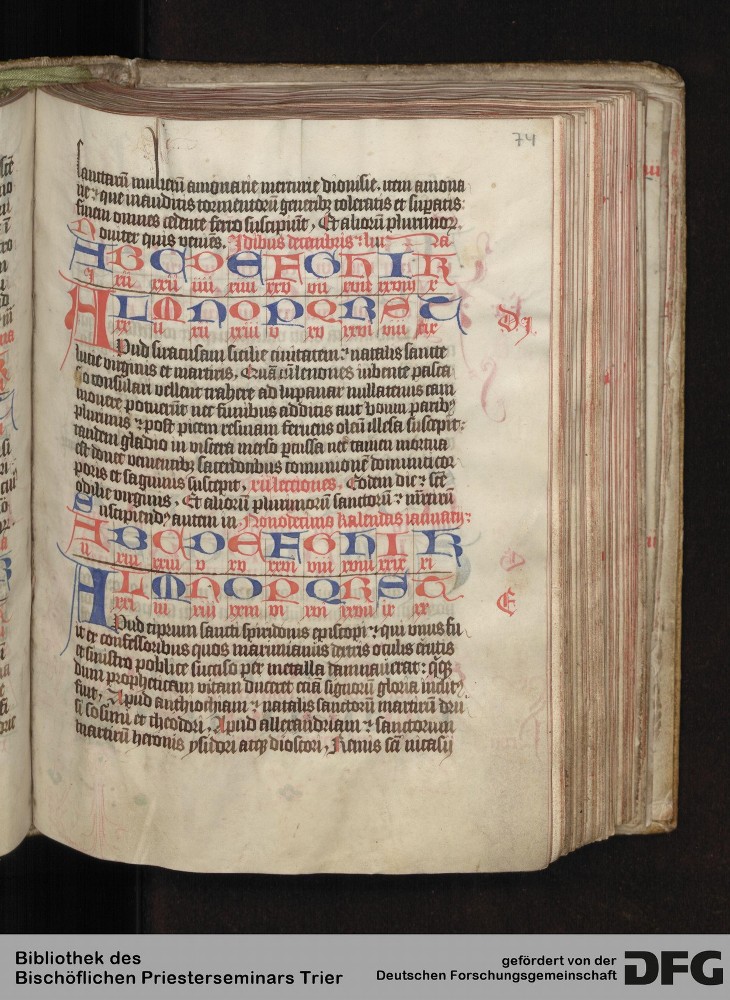 74
sanctarū mulierū amonarie mercurie dionisie. item amona
rie ⁊ que inauditis tormentorū generibꝫ toleratis et suꝑatis:
finem omnes cedente ferro suscipiūt, Et aliorū plurimoꝝ.
Nouiter quis veniēs. Idibus decembribus
A B C D E F G H I K
xii xxii iiii xiiii xxv vii xvii xxviii x
A L M N O P Q R S T
xx ii xii xxiii v xv xxvi viii xix
Dj
Pud siracusam sicilie ciuitatem: natalis sancte
lucie virginis et martiris, Quā cū lenones iubente pasca
sio consulari vellent trahere ad lupanar nullatenus eam
mouere potuerūt nec funibus additis aut boum paribꝫ
plurimis ⁊ post picem resinam feruens oleū illesa suscepit:
tandem gladio in viscera merso ꝑcussa nec tamen mortua
est donec venientibꝫ sacerdotibus communionē dominici cor
poris et sanguinis suscepit, xii lectiones, Eodem die: scē
odilie virginis, Et aliorū plurimorū sanctorū ⁊ mr̄tirū
Suscipiendꝰ autem in. Nonodecimo kalendas ianuarij:
A B C D E F G H I K
ii xiii xxiii v xv xxvi viii xviii xxix xi
A L M N O P Q R S T
xxi iii xiii xxiiii vi xvi xxvii ix xx
E
Pud ciprum sancti spiridonis episcopi: qui vnus fu
it ex confessoribus quos maximianus dextris oculis erutis
et sinistro poblice succiso per metalla damnauerat:
dum propheticam vitam duceret etiā signorū gloria inclitꝰ
fuit, Apud anthiochiam: natalis sanctorū martirū dru
si sosimi et theodori, Apud allexandriam: sanctorum
martirū heronis ysidori atqꝫ dioscori, Remis scī nicasij
Bibliothek des
Bischöflichen Priesterseminars Trier
gefördert von der
Deutschen Forschungsgemeinschaft
DFG